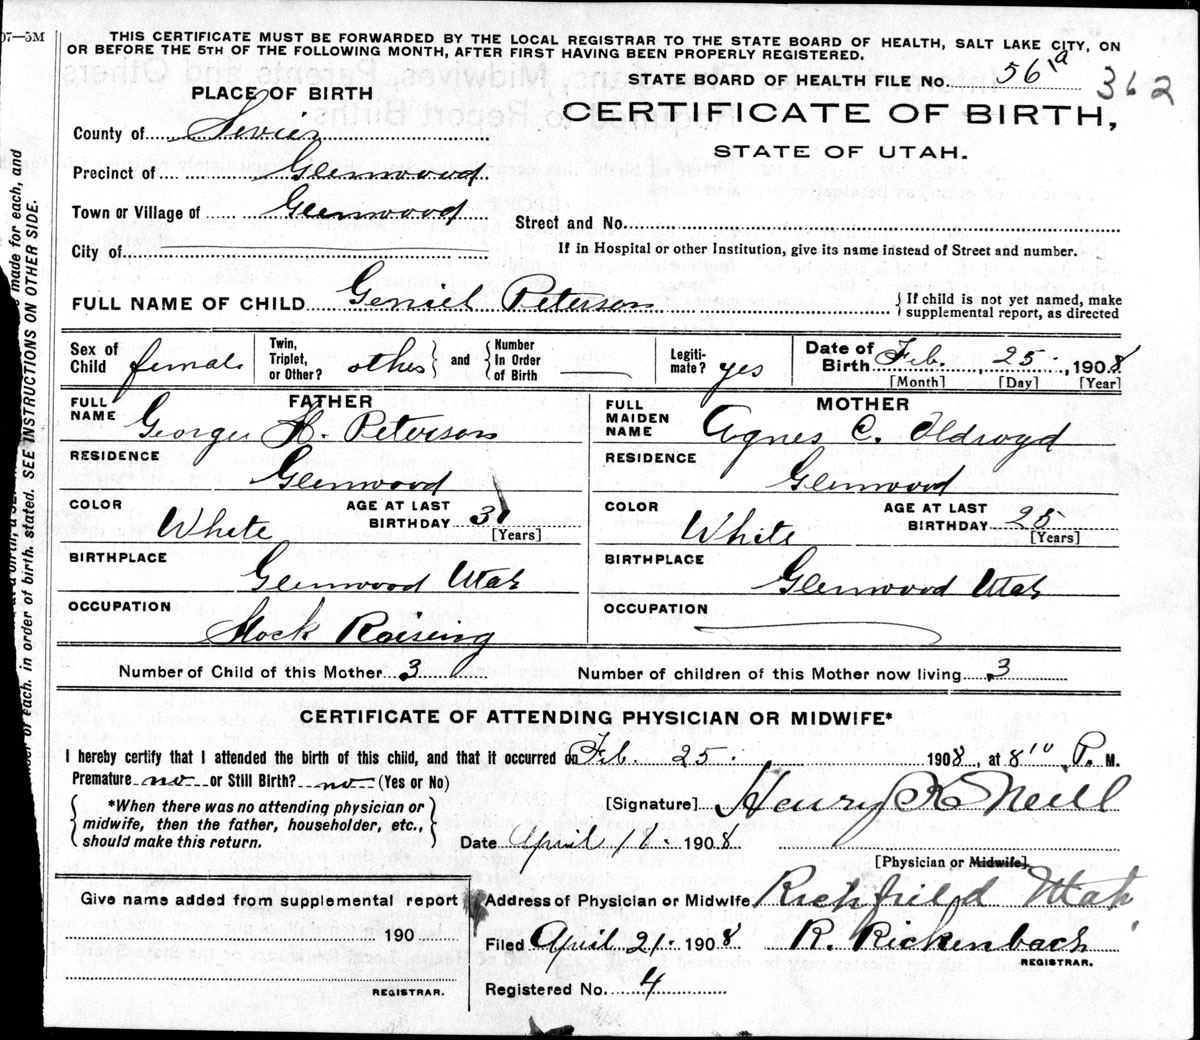 07—5M
THIS CERTIFICATE MUST BE FORWARDED BY THE LOCAL REGISTRAR TO THE STATE BOARD OF HEALTH, SALT LAKE CITY, ON
OR BEFORE THE 5TH OF THE FOLLOWING MONTH, AFTER FIRST HAVING BEEN PROPERLY REGISTERED.
STATE BOARD OF HEALTH FILE No. 56 19 362
PLACE OF BIRTH
CERTIFICATE OF BIRTH,
STATE OF UTAH.
County of Sevier
Precinct of Glenwood
Town or Village of Glenwood
Street and No.
City of
If in Hospital or other Institution, give its name instead of Street and number.
FULL NAME OF CHILD Geniel Peterson
If child is not yet named, make
supplemental report, as directed
Sex of Child female
Twin, Triplet, or Other? other and Number In Order of Birth
Legiti- mate? yes
Date of Birth Feb. 25 , 1908
[Month] [Day] [Year]
FATHER
FULL NAME George H. Peterson
MOTHER
FULL MAIDEN NAME Agnes C. Oldroyd
RESIDENCE Glenwood
RESIDENCE Glenwood
COLOR White AGE AT LAST BIRTHDAY 31 [Years]
COLOR White AGE AT LAST BIRTHDAY 25 [Years]
BIRTHPLACE Glenwood Utah
BIRTHPLACE Glenwood Utah
OCCUPATION Stock Raising
OCCUPATION
Number of Child of this Mother 3
Number of children of this Mother now living 3
CERTIFICATE OF ATTENDING PHYSICIAN OR MIDWIFE*
I hereby certify that I attended the birth of this child, and that it occurred on Feb. 25. 1908, at 8 10 P. M.
Premature no or Still Birth? no (Yes or No)
*When there was no attending physician or
midwife, then the father, householder, etc.,
should make this return.
[Signature] Henry K Neill
Date April 18. 1908
[Physician or Midwife]
Give name added from supplemental report
190
REGISTRAR.
Address of Physician or Midwife Richfield Utah
Filed April 21. 1908 R. Rickenbach
REGISTRAR.
Registered No. 4
made for each, and
of each, in order of birth, stated. SEE INSTRUCTIONS ON OTHER SIDE.